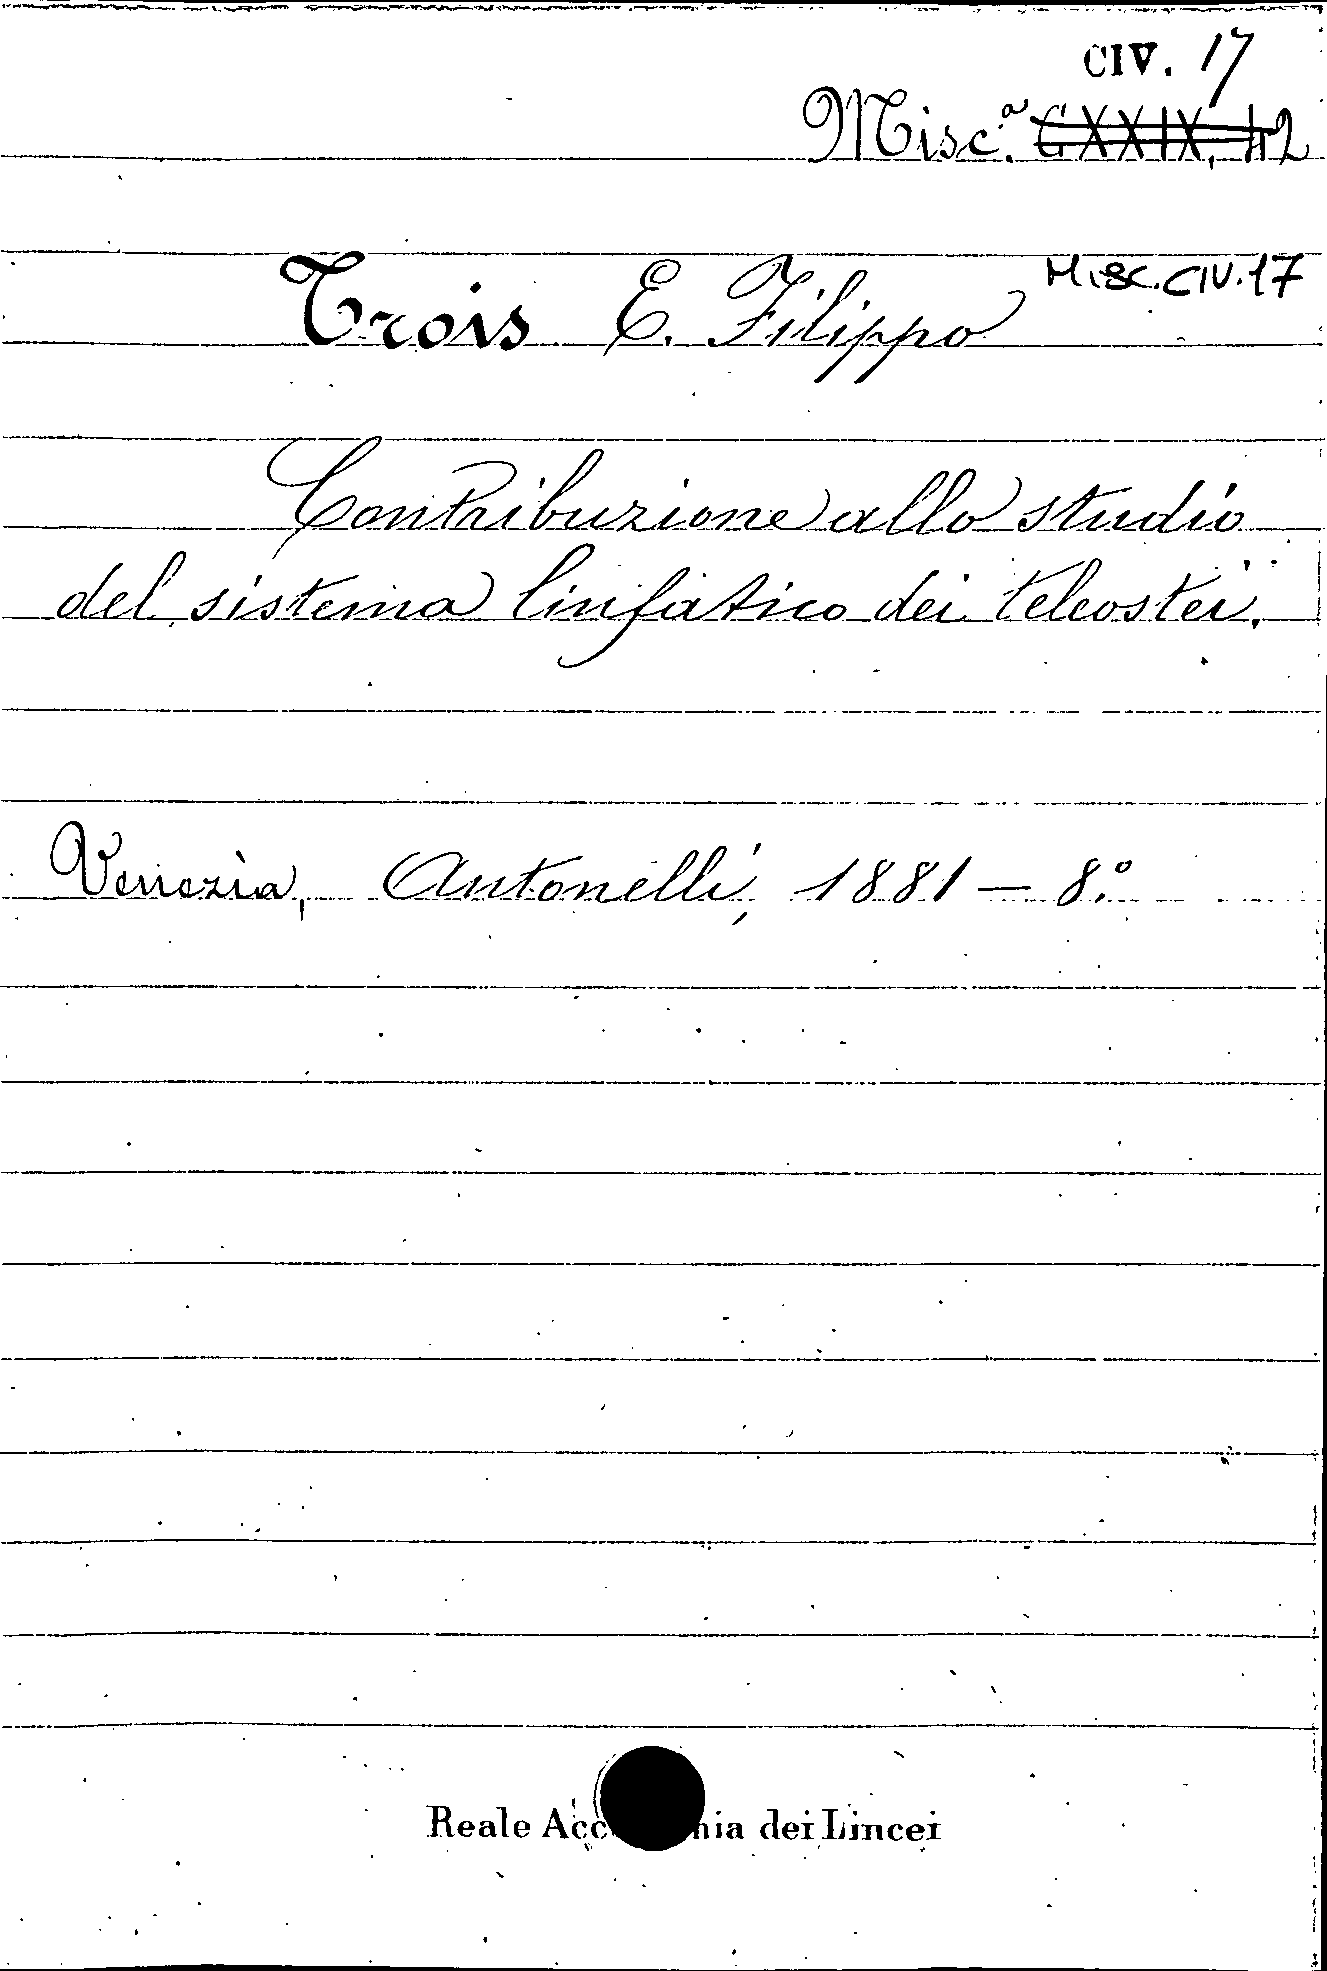 CIV. 17
Misc.ª CXXIX, 42
MISC. CIV. 17
Trois E. Filippo
Contribuzione allo studio
del sistema linfatico dei teleostei.
Venezia, Antonelli, 1881 — 8.º
Reale Acc nia dei Lincei